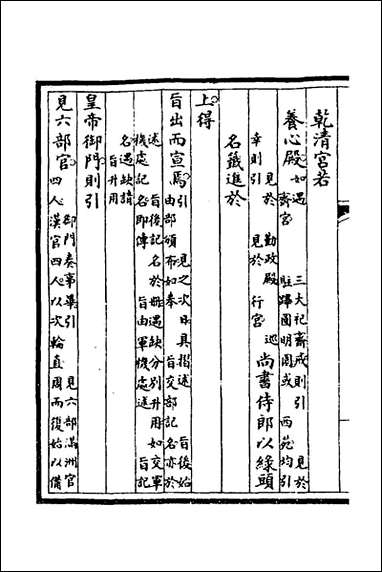 乾清宮若
養心殿
如遇 三大祀齋戒則引 見於
齋宮 駐蹕圓明園或 西苑均引
見於 勤政殿 巡
幸則引 見於 行宮
尚書侍郎以綠頭
名籤進於
上得
旨出而宣焉
引 見之次日具摺述 旨後始
由部頒布如奉 旨交部記名亦於
述 旨後記名於冊遇缺分別升用如交軍
機處記名即傳 旨由軍機處述 旨記
名遇缺請
旨升用
皇帝御門則引
見六部官
御門奏事畢引 見六部滿洲官
四人漢官四人以次輪直周而復始以備